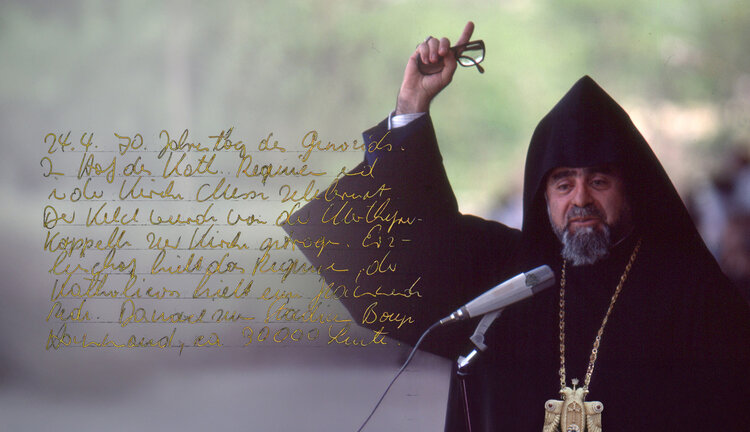 24.4. 70. Jahrestag des Genozids.
Im Hof des Kath. Requiem und
in der Kirche Messe zelebriert
Der Kelch wurde von der Märtyrer-
Kappelle zur Kirche getragen. Erz-
bischof hielt das Requiem, der
Katholicos hielt eine flammende
Rede. Danach zum Stadion Bourj
Hammoud, ca. Leute.